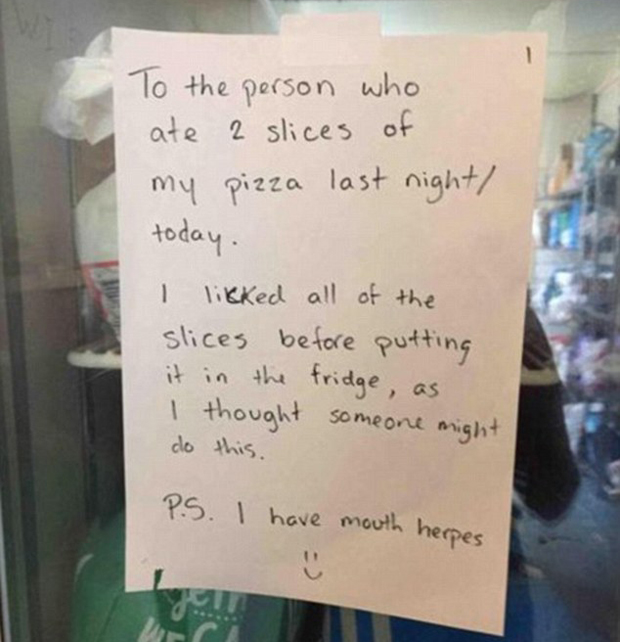 To the person who
ate 2 slices of
my pizza last night/
today.
I licked all of the
slices before putting
it in the fridge, as
I thought someone might
do this.
P.S. I have mouth herpes